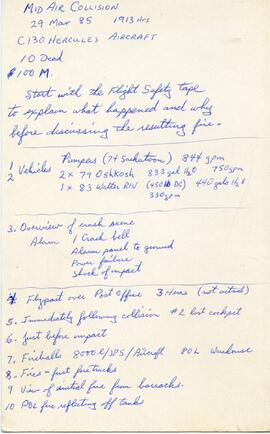 MID AIR COLLISION
29 Mar 85 1913 Hrs
C130 HERCULES AIRCRAFT
10 Dead
$100 M.
Start with the Flight Safety tape
to explain what happened and why
before discussing the resulting fire.
1 Vehicles Pumper (74 Saskatoon) 844 gpm
2 2 x 79 Oshkosh 833 gal H2O 750gpm
1 x 83 Walter RIV (450 lb DC) 440 gals H2O
330gpm
3. Overview of crash scene
Alarm 1 Crash bell
Alarm panel to ground
Power failure
Shock of impact
4 Flypast over Post Office 3 Hercs (not cited)
5. Immediately following collision #2 lost cockpit
6. Just before impact
7. Fireballs 8000 l/JP5/Aircraft POL Warehouse
8. Fires - just firetrucks
9 View of initial fire from barracks.
10 POL fire reflecting off tanks